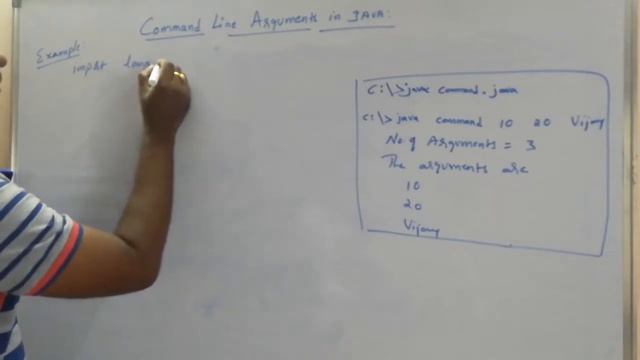 Command Line Arguments in JAVA:
Example:
import lang
C:\>javac command.java
C:\>java command 10 20 Vijay
No of Arguments = 3
The arguments are
10
20
Vijay